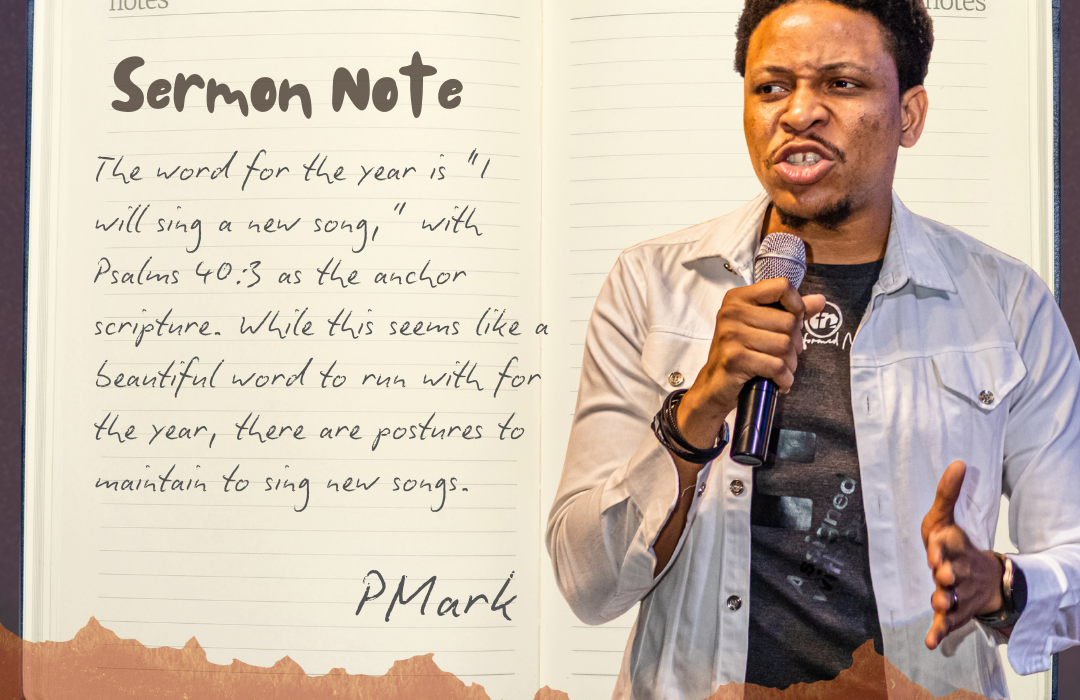 notes
notes
Sermon Note
The word for the year is "I
will sing a new song," with
Psalms 40:3 as the anchor
scripture. While this seems like a
beautiful word to run with for
the year, there are postures to
maintain to sing new songs.
PMark